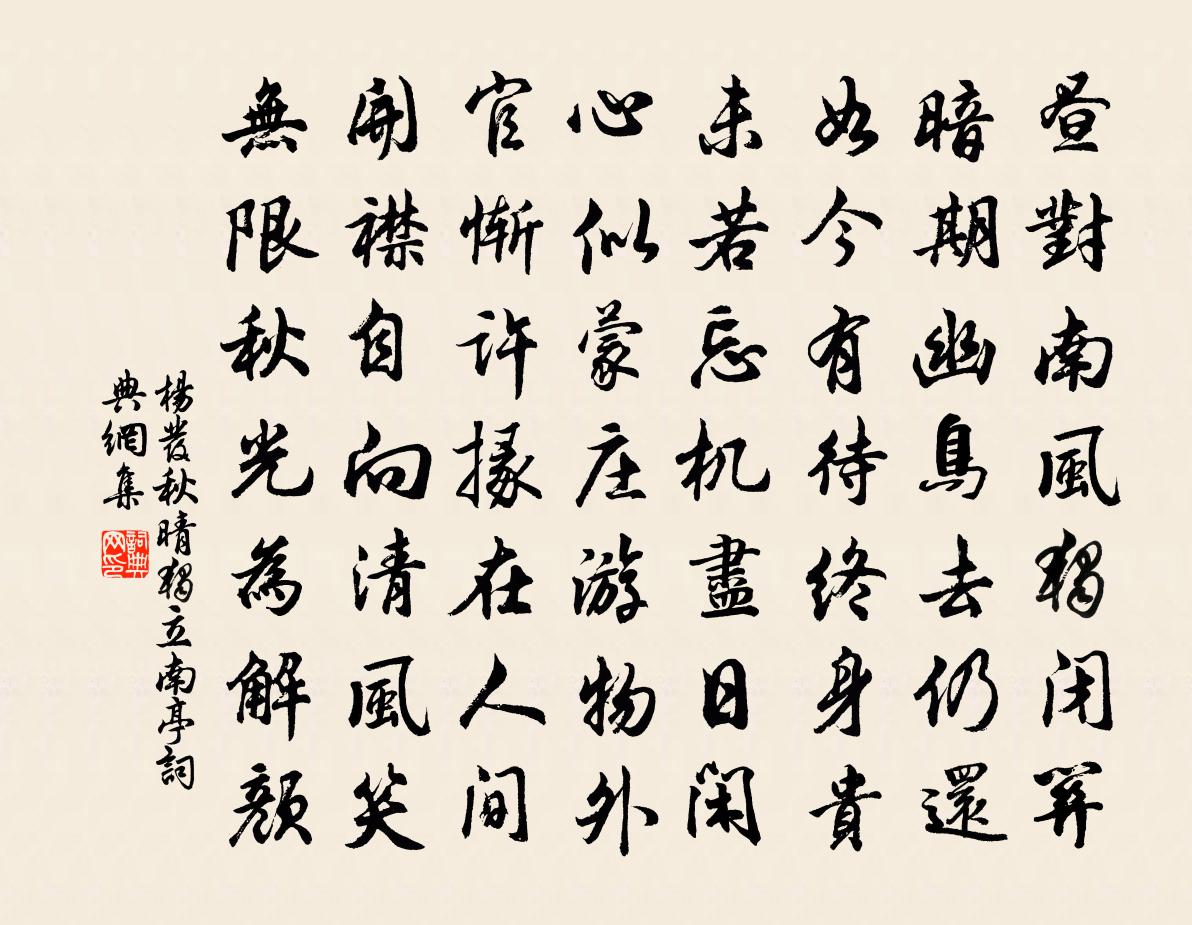 昼對南風獨閉關
暗期幽鳥去仍還
如今有待終身貴
未若忘机盡日閑
心似蒙庄游物外
官慚許掾在人間
開襟自向清風笑
無限秋光為解顏
楊發秋晴獨立南亭詞
典網集
詞典網印